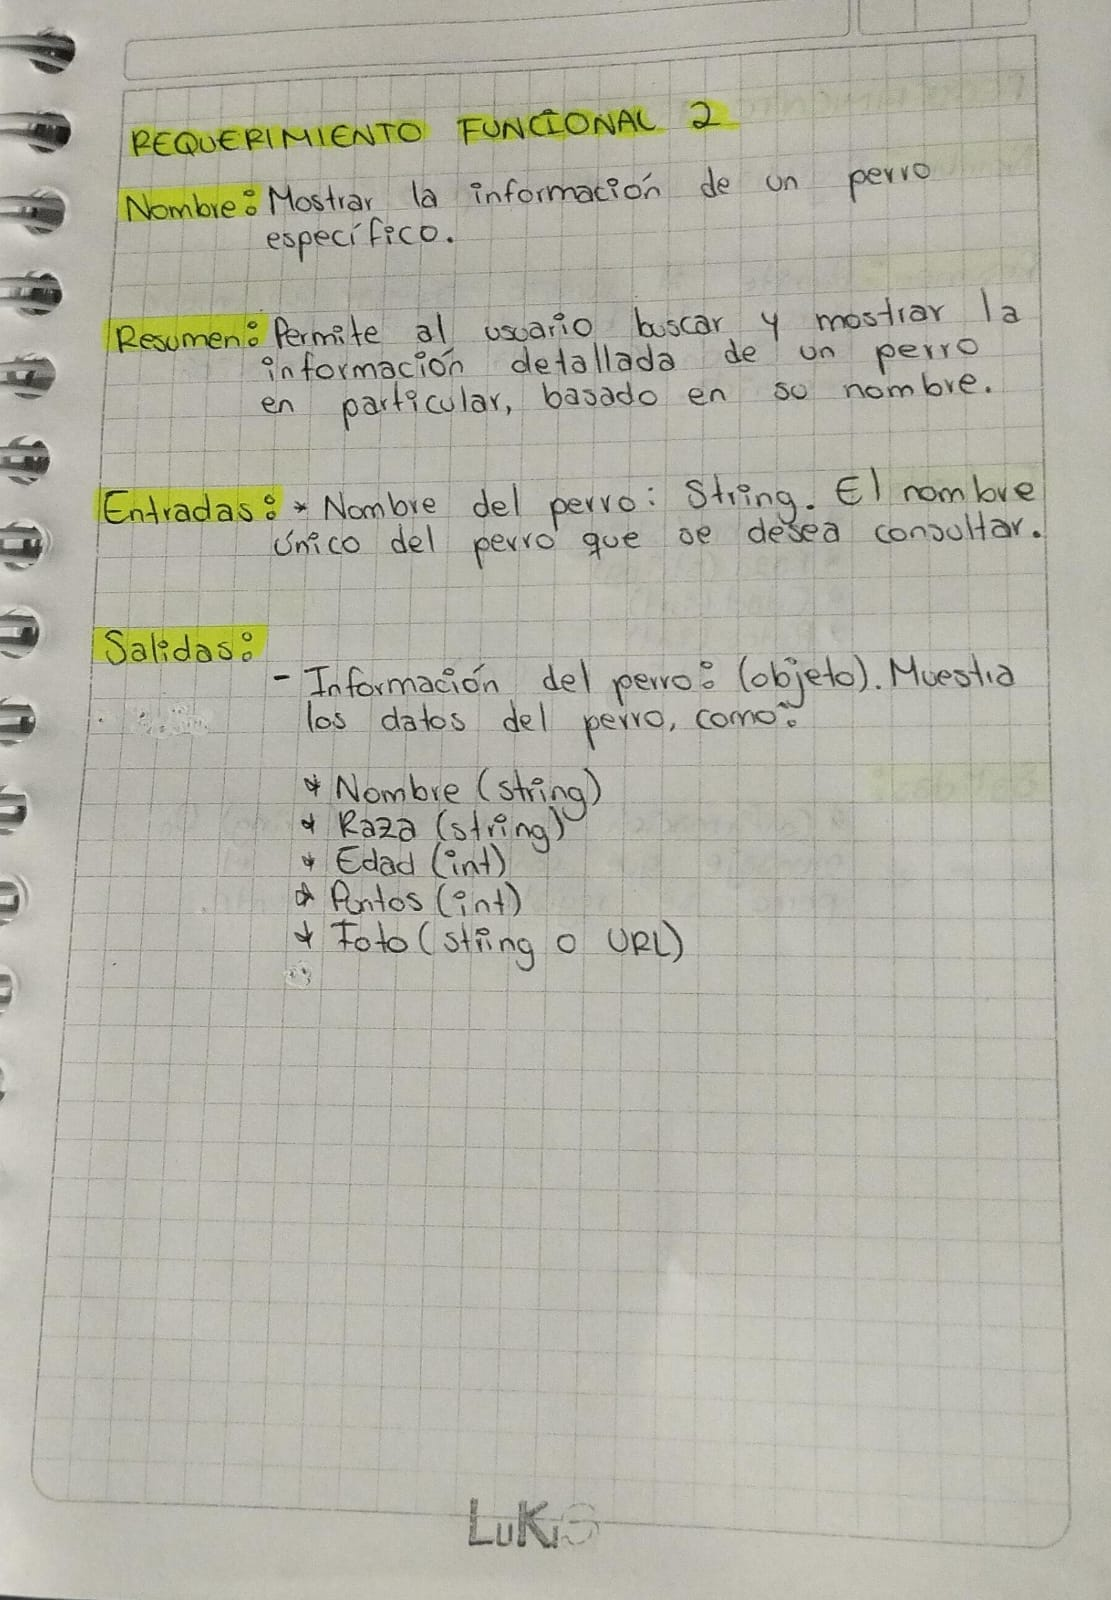 REQUERIMIENTO FUNCIONAL 2
Nombre: Mostrar la información de un perro
específico.
Resumen: Permite al usuario buscar y mostrar la
información detallada de un perro
en particular, basado en su nombre.
Entradas: * Nombre del perro: String. El nombre
único del perro que se desea consultar.
Salidas:
- Información del perro: (objeto). Muestra
los datos del perro, como:
* Nombre (string)
* Raza (string)
* Edad (int)
* Puntos (int)
* Foto (string o URL)
LuKiS